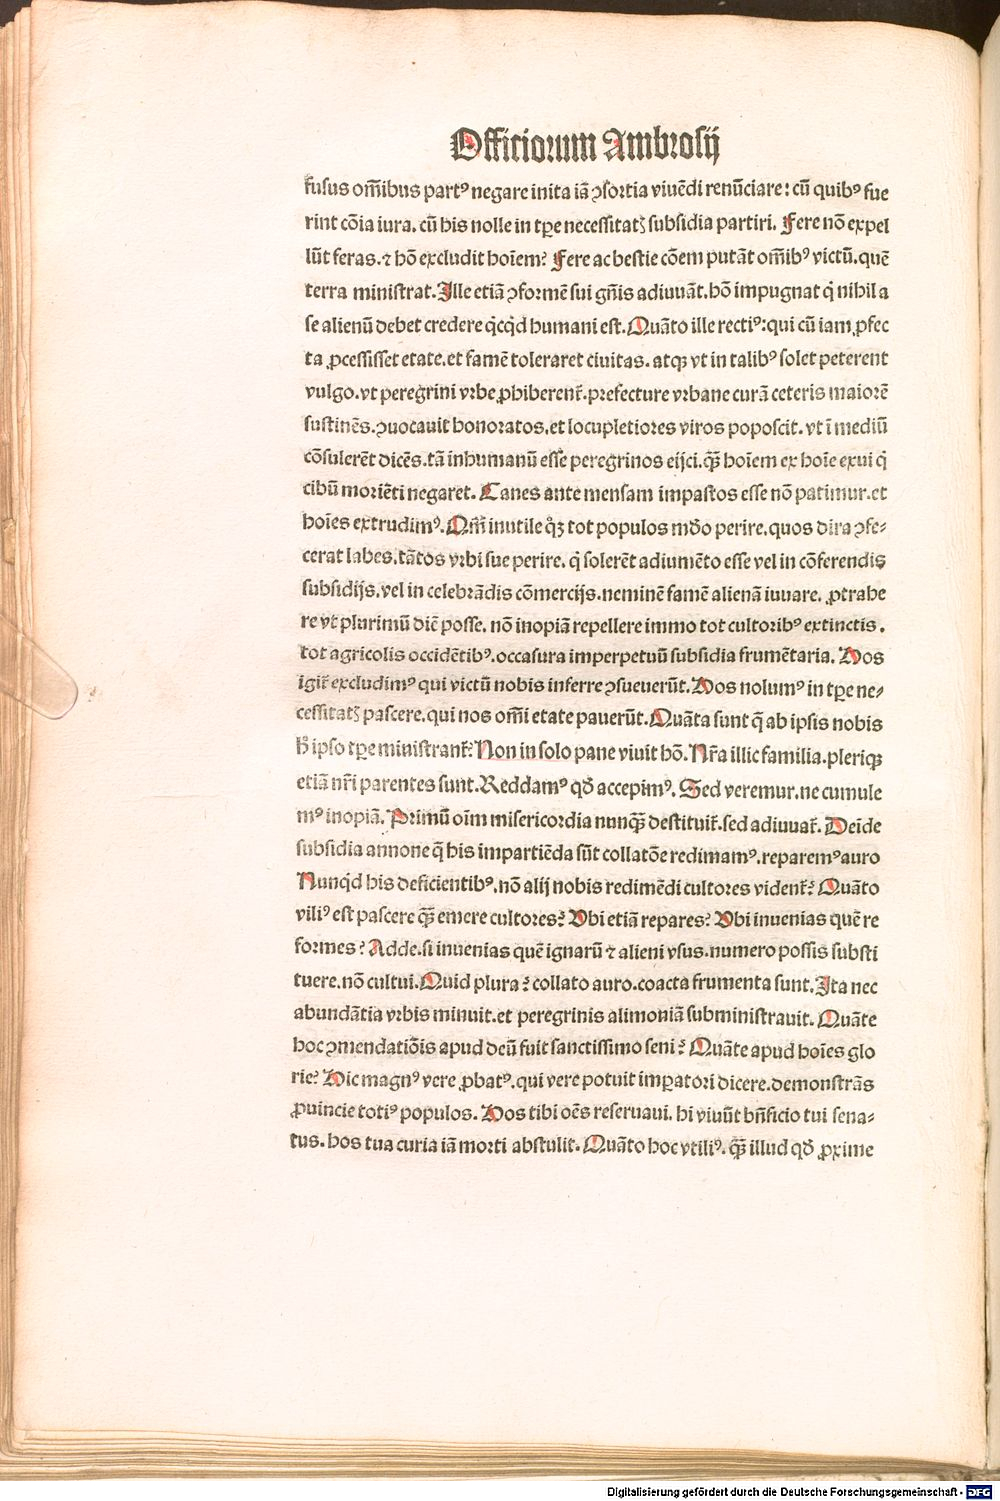 Officiorum Ambrosij
fusus om̄ibus partꝰ negare inita iā ꝯsortia viuēdi renūciare: cū quibꝰ fue
rint cōia iura. cū his nolle in tꝑe necessitatꝭ subsidia partiri. Fere nō expel
lūt feras. ⁊ hō excludit hoīem? Fere ac bestie cōem putāt om̄ibꝰ victū. quē
terra ministrat. Ille etiā ꝯformē sui gn̄is adiuuāt. hō impugnat q̇ nihil a
se alienū debet credere q̇cq̇d humani est. Quāto ille rectiꝰ: qui cū iam ꝓfec
ta ꝓcessisset etate. et famē toleraret ciuitas. atqꝫ vt in talibꝰ solet peterent
vulgo. vt peregrini vrbe ꝓhiberent᷑. prefecture vrbane curā ceteris maiorē
sustinēs. ꝯuocauit honoratos. et locupletiores viros poposcit. vt ī mediū
cōsulerēt dicēs. tā inhumanū esse peregrinos eijci. qꝫ̄ hoīem ex hoīe exui q̇
cibū moriēti negaret. Canes ante mensam impastos esse nō patimur. et
hoīes extrudimꝰ. Qm̄ inutile q̊ꝫ tot populos mdo perire. quos dira ꝯfe-
cerat labes. tātos vrbi sue perire. q̇ solerēt adiumēto esse vel in cōferendis
subsidijs. vel in celebrādis cōmercijs. neminē famē alienā iuuare. ꝓtrahe
re vt plurimū diē posse. nō inopiā repellere immo tot cultoribꝰ extinctis.
tot agricolis occidētibꝰ. occasura imperpetuū subsidia frumētaria. Hos
igit᷑ excludimꝰ qui victū nobis inferre ꝯsueuerūt. Hos nolumꝰ in tꝑe ne-
cessitatꝭ pascere. qui nos om̄i etate pauerūt. Quāta sunt q̄ ab ipsis nobis
h̊ ipso tꝑe ministrant᷑? Non in solo pane viuit hō. Nr̄a illic familia. plerique
etiā nr̄i parentes sunt. Reddamꝰ qđ accepimꝰ. Sed veremur. ne cumule
mꝰ inopiā. Primū oīm misericordia nunqꝫ̄ destituit᷑. sed adiuuat᷑. Deīde
subsidia annone q̄ his impartiēda sūt collatōe redimamꝰ. reparemꝰ auro
Nunq̇d his deficientibꝰ. nō alij nobis redimēdi cultores vident᷑? Quāto
viliꝰ est pascere qꝫ̄ emere cultores? Vbi etiā repares? Vbi inuenias quē re
formes? Adde. si inuenias quē ignarū ⁊ alieni vsus. numero possis substi
tuere. nō cultui. Quid plura? collato auro. coacta frumenta sunt. Ita nec
abundātia vrbis minuit. et peregrinis alimoniā subministrauit. Quāte
hoc ꝯmendatiōis apud deū fuit sanctissimo seni? Quāte apud hoīes glo
rie? Hic magnꝰ vere ꝓbatꝰ. qui vere potuit imꝑatori dicere. demonstrās
ꝓuincie totiꝰ populos. Hos tibi oēs reseruaui. hi viuūt bn̄ficio tui sena-
tus. hos tua curia iā morti abstulit. Quāto hoc vtiliꝰ. qꝫ̄ illud qđ ꝓxime
Digitalisierung gefördert durch die Deutsche Forschungsgemeinschaft - DFG